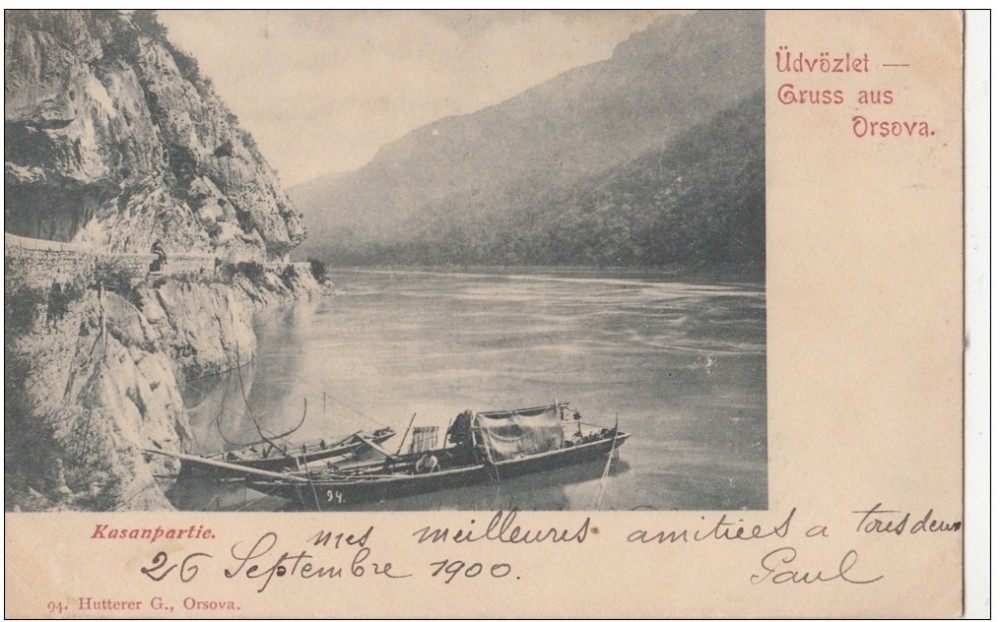 Üdvözlet —
Gruss aus
Orsova.
94.
Kasanpartie.
mes meilleures amitiées a tous deux
26 Septembre 1900.
Paul
94. Hutterer G., Orsova.